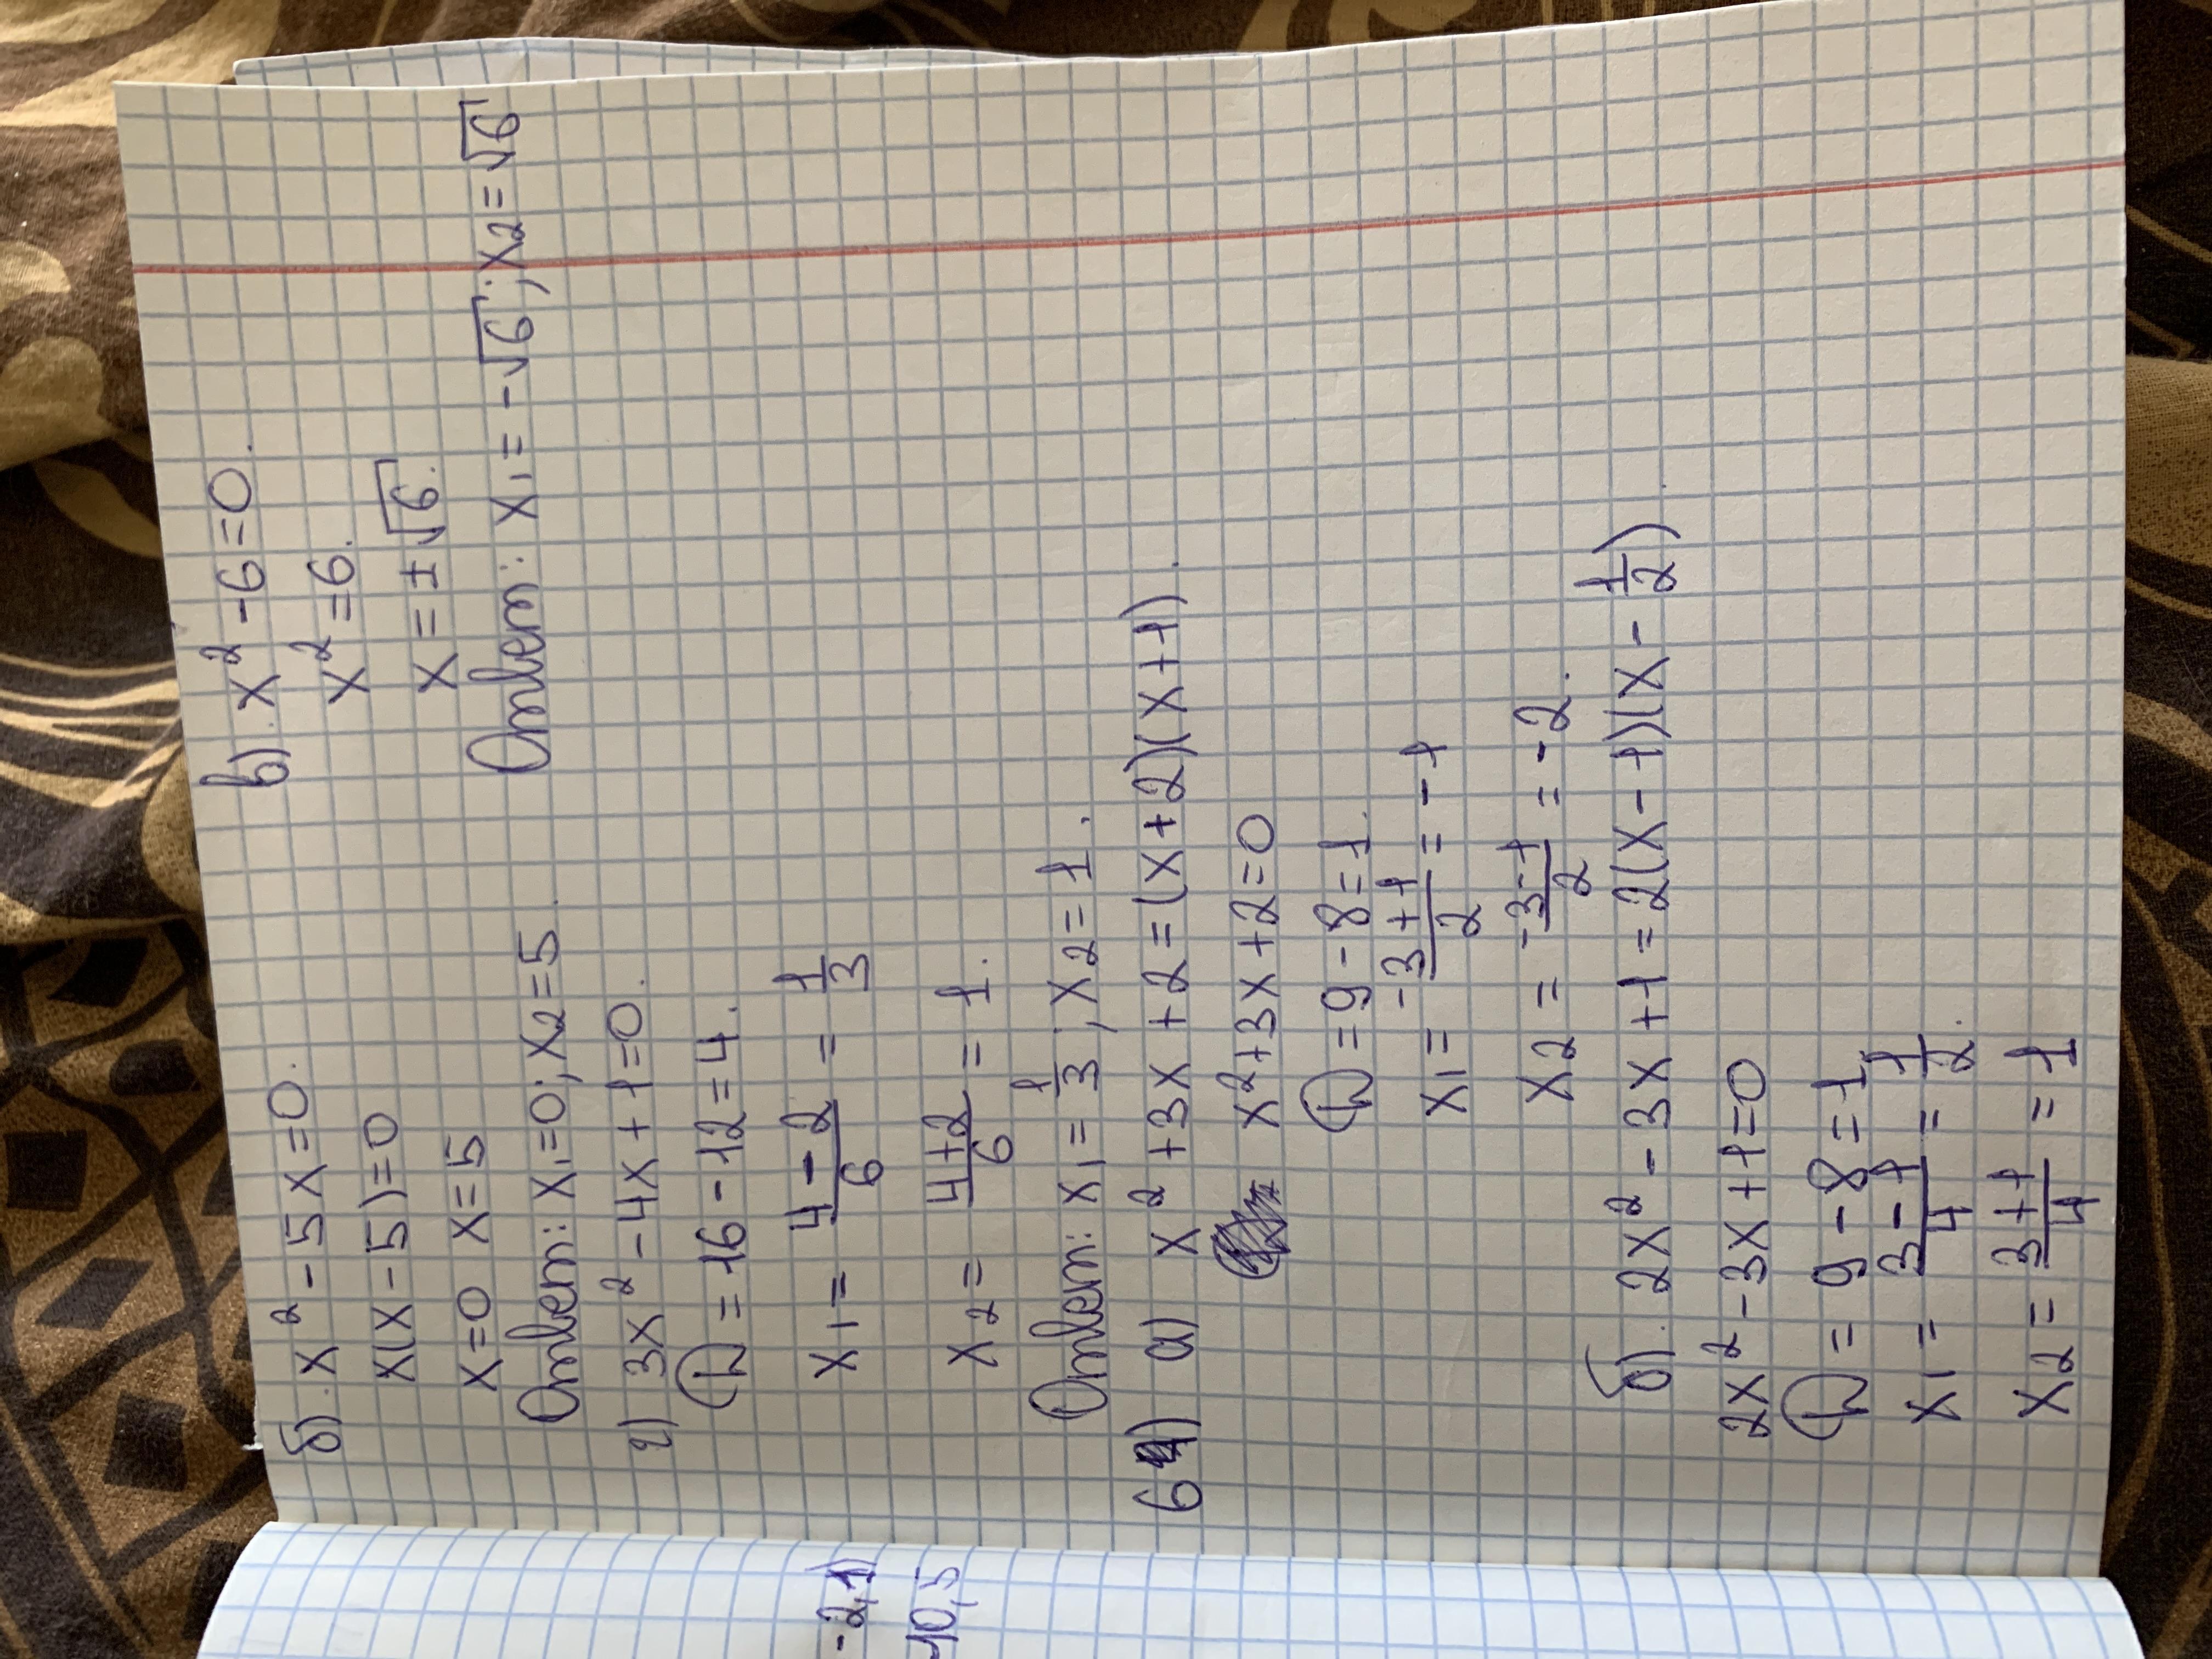 б). x² - 5x = 0.
x(x - 5) = 0
x = 0 x = 5
Ответ: x₁ = 0; x₂ = 5.
в). x² - 6 = 0.
x² = 6.
x = ± √6.
Ответ: x₁ = - √6; x₂ = √6
г) 3x² - 4x + 1 = 0.
D = 16 - 12 = 4.
x₁ = (4 - 2)/6 = 1/3
x₂ = (4 + 2)/6 = 1.
Ответ: x₁ = 1/3; x₂ = 1.
6) а) x² + 3x + 2 = (x + 2)(x + 1).
x² + 3x + 2 = 0
D = 9 - 8 = 1.
x₁ = (-3 + 1)/2 = -1
x₂ = (-3 - 1)/2 = -2.
б). 2x² - 3x + 1 = 2(x - 1)(x - 1/2)
2x² - 3x + 1 = 0
D = 9 - 8 = 1
x₁ = (3 - 1)/4 = 1/2.
x₂ = (3 + 1)/4 = 1
-2,1)
10,5